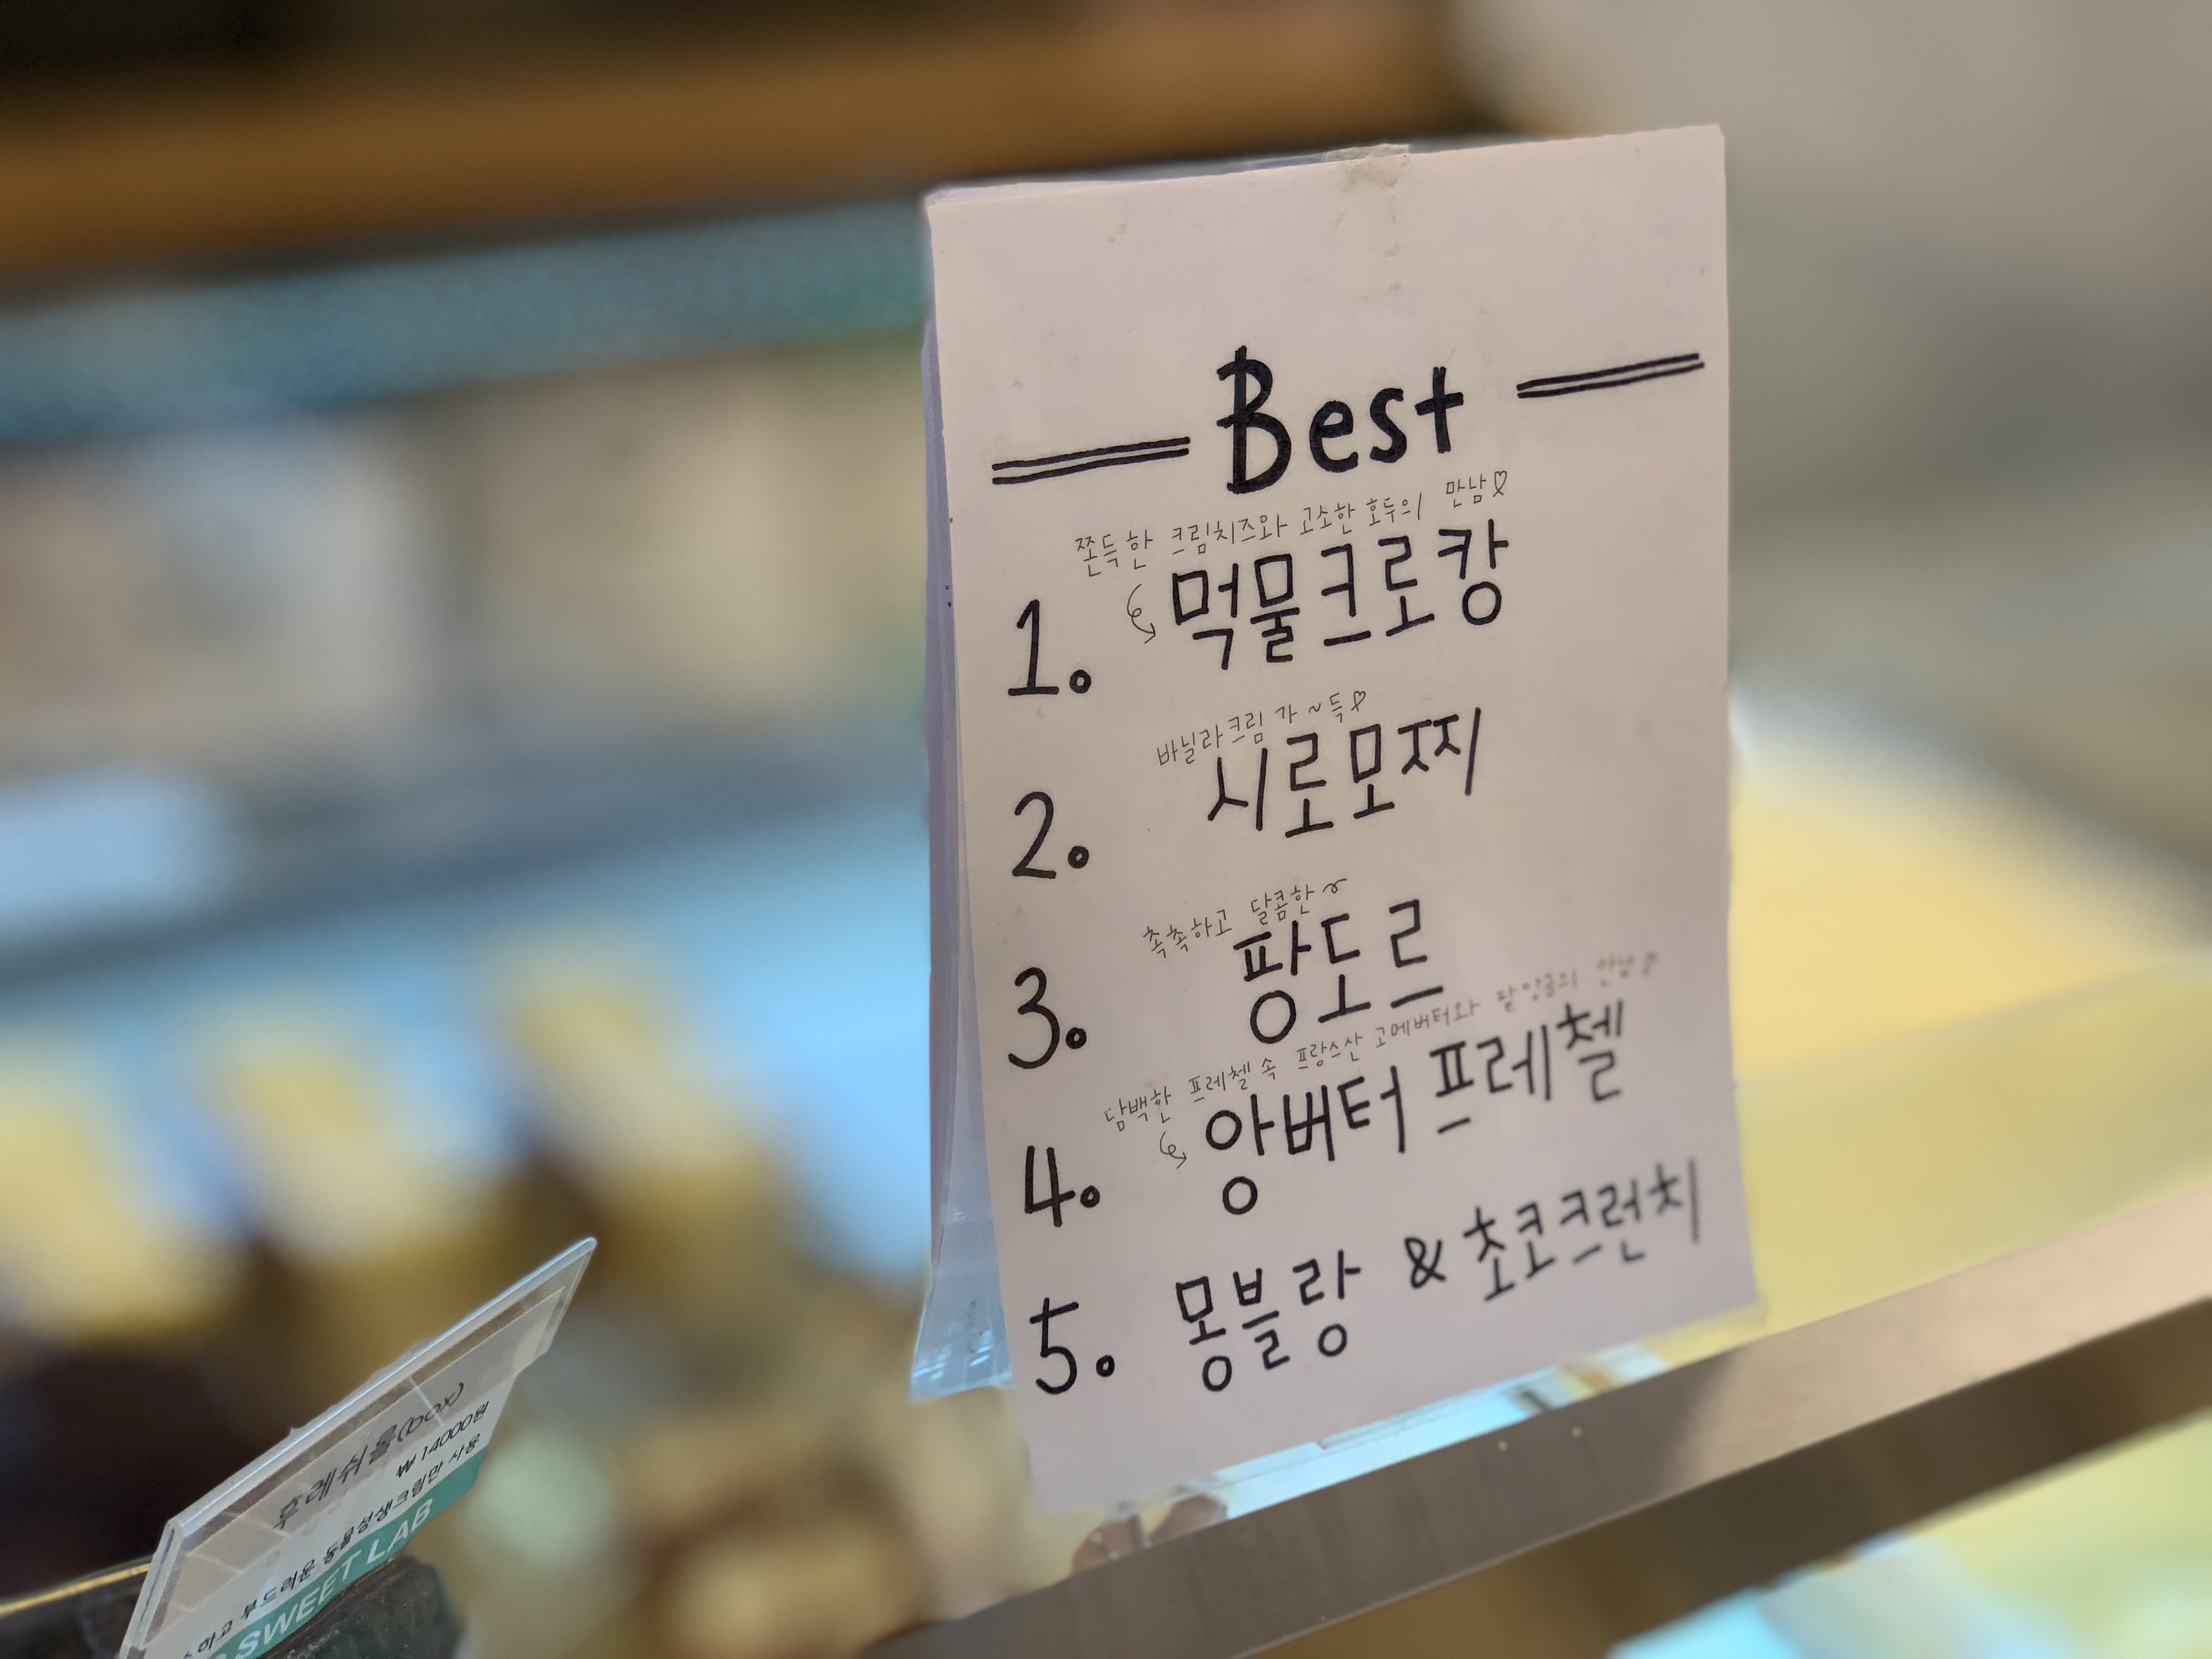 Best
쫀득한 크림치즈와 고소한 호두의 만남♡
1. 먹물크로캉
바닐라크림 가~득♡
2. 시로모찌
촉촉하고 달콤한~
3. 팡도르
담백한 프레첼 속 프랑스산 고메버터와 팥앙금의 만남♡
4. 앙버터 프레첼
5. 몽블랑 & 초코크런치
후레쉬롤(box)
₩ 14000원
부드러운 동물성생크림만 사용
SWEET LAB